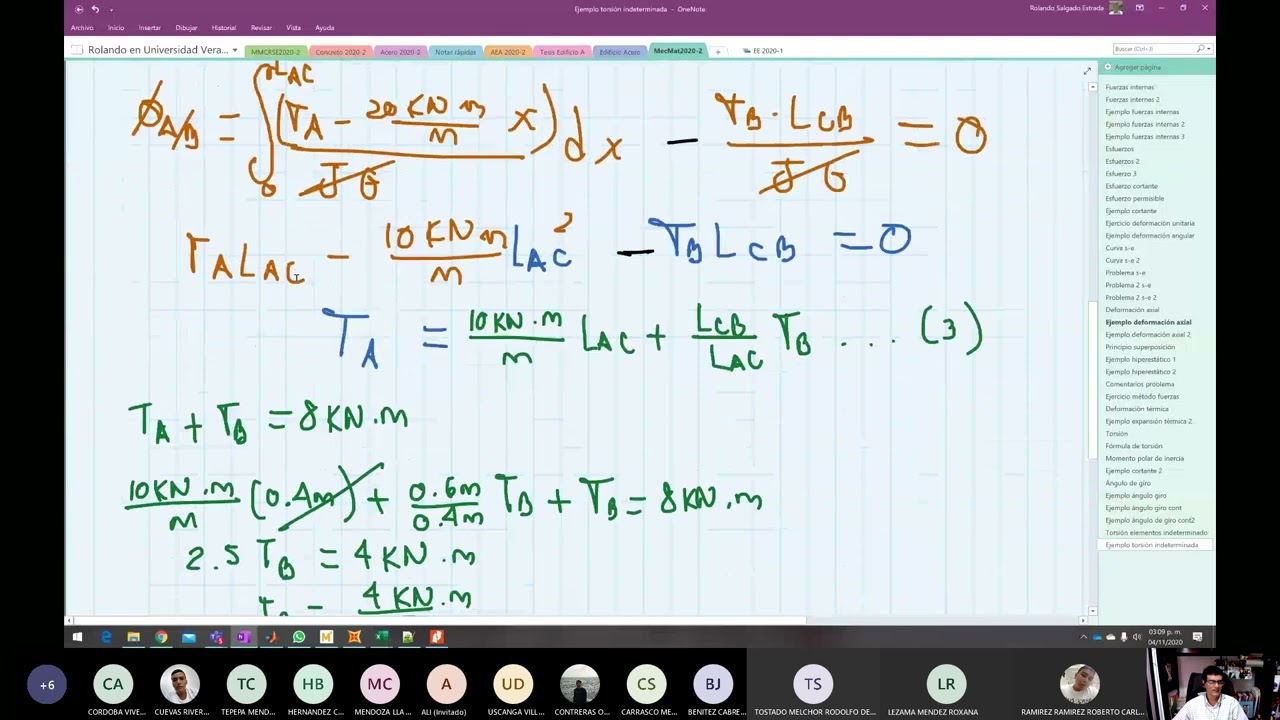 Ejemplo torsión indeterminada - OneNote
Rolando Salgado Estrada
Archivo Inicio Insertar Dibujar Historial Revisar Vista Ayuda
Rolando en Universidad Vera...
MMCRSE2020-2 Concreto 2020-2 Acero 2020-2 Notas rápidas AEA 2020-2 Tesis Edificio A Edificio Acero MecMat2020-2 + EE 2020-1
Buscar (Ctrl+J)
Agregar página
Fuerzas internas
Fuerzas internas 2
Ejemplo fuerzas internas
Ejemplo fuerzas internas 2
Ejemplo fuerzas internas 3
Esfuerzos
Esfuerzos 2
Esfuerzo 3
Esfuerzo cortante
Esfuerzo permisible
Ejemplo cortante
Ejercicio deformación unitaria
Ejemplo deformación angular
Curva s-e
Curva s-e 2
Problema s-e
Problema 2 s-e
Problema 2 s-e 2
Deformación axial
Ejemplo deformación axial
Ejemplo deformación axial 2
Principio superposición
Ejemplo hiperestático 1
Ejemplo hiperestático 2
Comentarios problema
Ejercicio método fuerzas
Deformación térmica
Ejemplo expansión térmica 2
Torsión
Fórmula de torsión
Momento polar de inercia
Ejemplo cortante 2
Ángulo de giro
Ejemplo ángulo giro
Ejemplo ángulo giro cont
Ejemplo ángulo de giro cont2
Torsión elementos indeterminado
Ejemplo torsión indeterminada
ϕA/B = ∫0^LAC (TA - 20 KN m/m x) dx / JG - TB · LCB / JG = 0
TA LAC - 10 KN m/m LAC² - TB LCB = 0
TA = 10 KN·m/m LAC + LCB/LAC TB .... (3)
TA + TB = 8 KN·m
10 KN·m/m (0.4m) + 0.6m/0.4m TB + TB = 8 KN·m
2.5 TB = 4 KN·m
4 KN·m
03:09 p. m.
04/11/2020
+6 CA TC HB MC A UD CS BJ TS LR
CORDOBA VIVE... CUEVAS RIVER... TEPEPA MEND... HERNANDEZ C... MENDOZA LLA... ALI (Invitado) USCANGA VILL... CONTRERAS O... CARRASCO ME... BENITEZ CABRE... TOSTADO MELCHOR RODOLFO DE... LEZAMA MENDEZ ROXANA RAMIREZ RAMIREZ ROBERTO CARL...